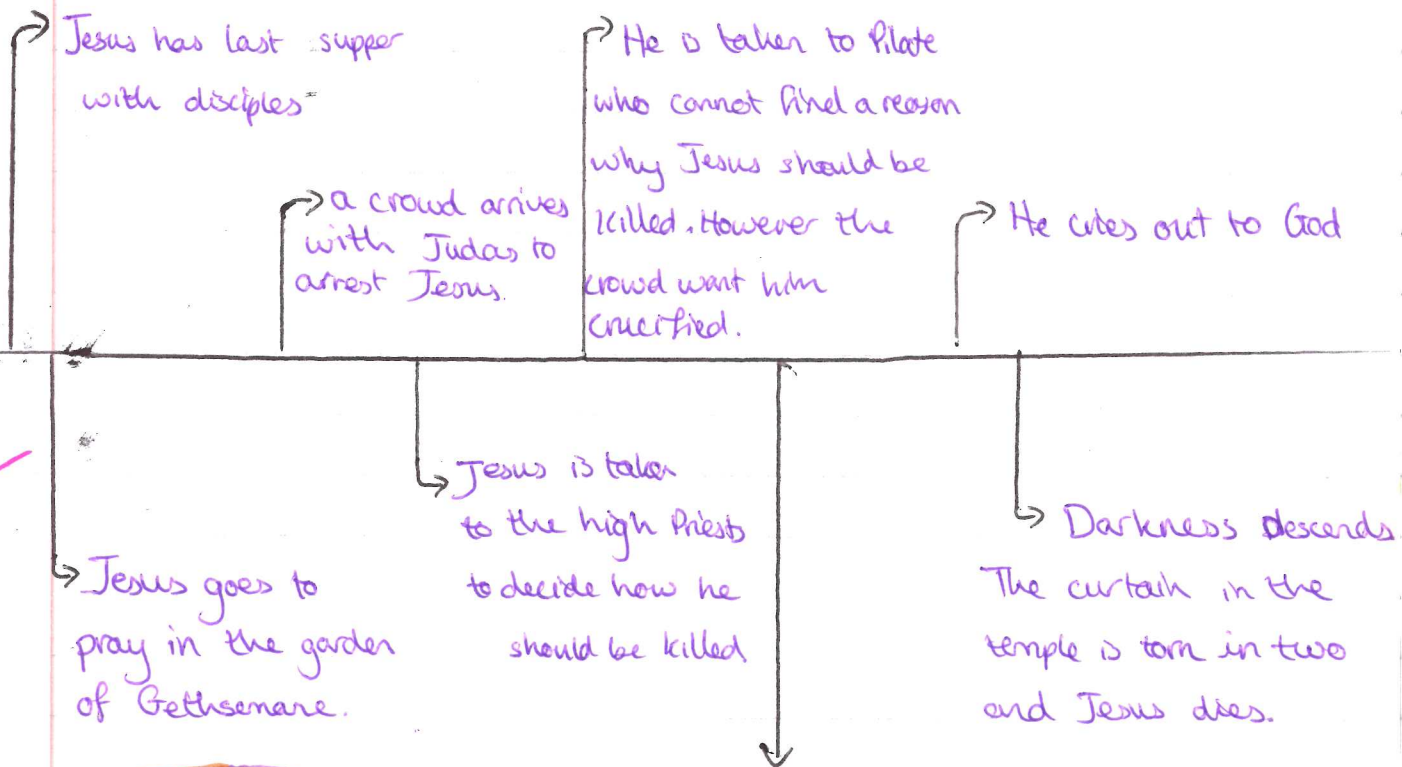 Jesus has last supper
with disciples
Jesus goes to
pray in the garden
of Gethsemane.
a crowd arrives
with Judas to
arrest Jesus.
Jesus is taken
to the high Priests
to decide how he
should be killed
He is taken to Pilate
who cannot find a reason
why Jesus should be
killed. However the
crowd want him
crucified.
He cries out to God
Darkness descends.
The curtain in the
temple is torn in two
and Jesus dies.